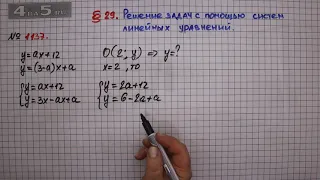 4 на 5 .com
§ 29. Решение задач с помощью систем линейных уравнений.
№ 1137.
y=ax+12
y=(3-a)x+a
O(2;y) => y=?
x=2, то
{y=ax+12
{y=3x-ax+a
{y=2a+12
{y=6-2a+a